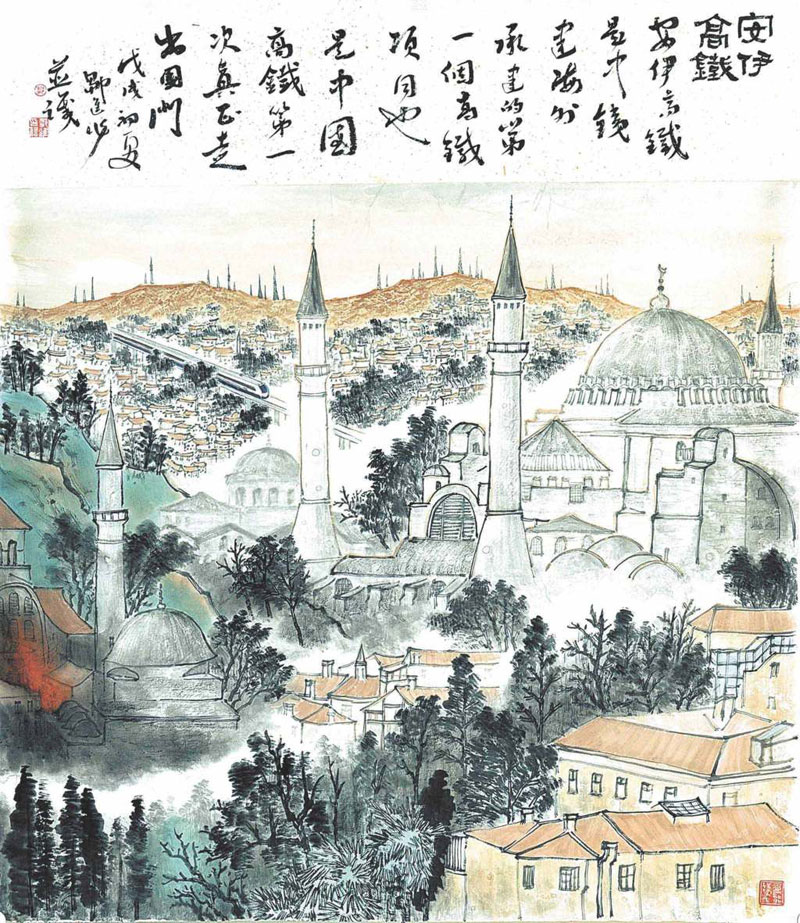 安伊
高鐵
安伊高鐵
是中鐵
建海外
承建的第
一個高鐵
項目也
是中國
高鐵第一
次真正走
出國門
戊戌初夏
並識